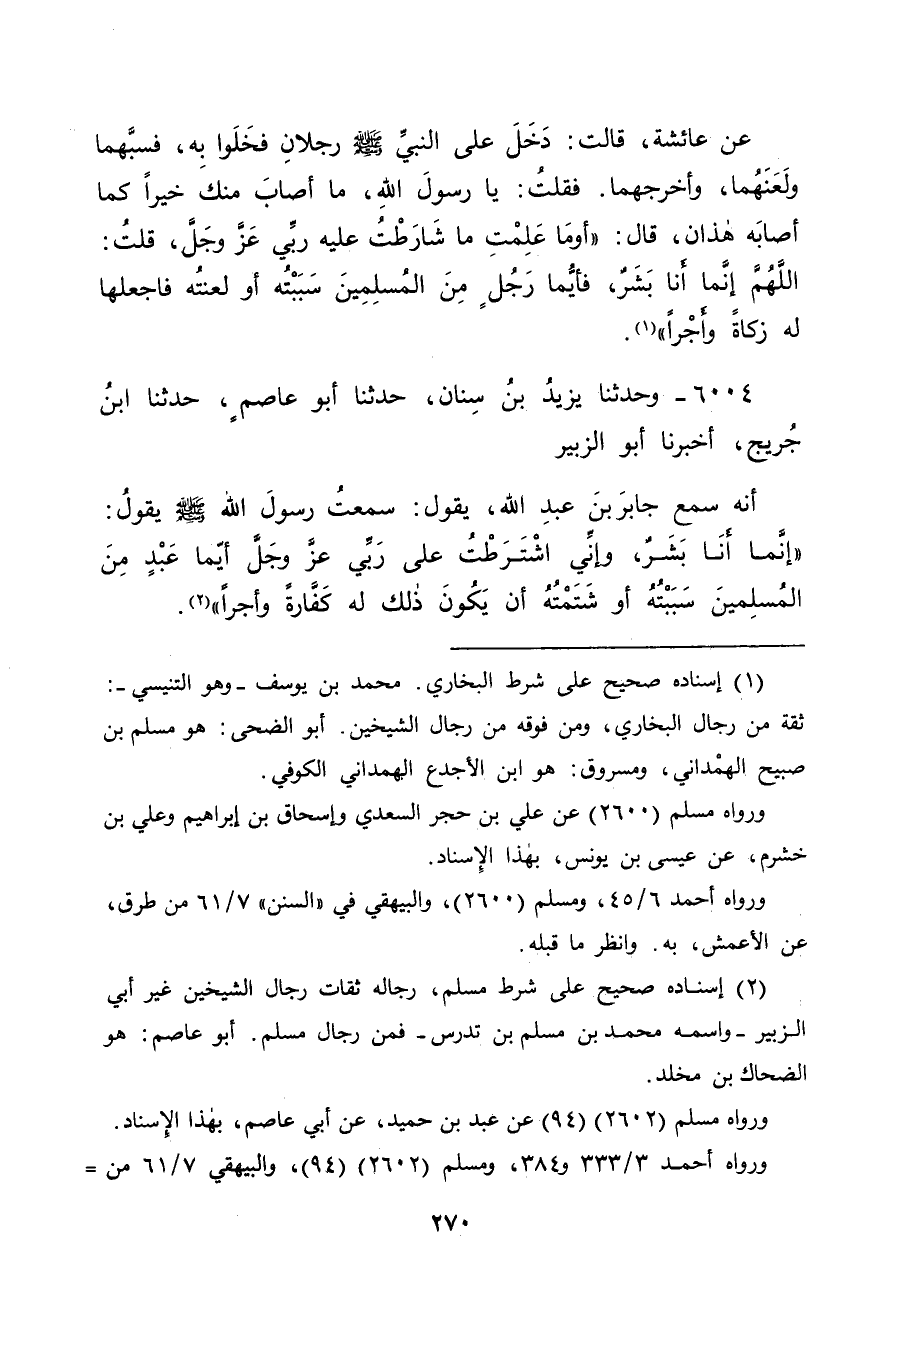 عن عائشة، قالت: دَخَلَ على النبيِّ ﷺ رجلانِ فخَلَوا بِه، فسبَّهما
ولَعَنَهُما، وأخرجهما. فقلتُ: يا رسولَ اللهِ، ما أصابَ منك خيراً كما
أصابَه هٰذان، قال: «أومَا عَلِمْتِ ما شَارَطْتُ عليه ربِّي عَزَّ وجَلَّ، قلتُ:
اللَّهُمَّ إنَّما أَنا بَشَرٌ، فأيُّما رَجُلٍ مِنَ المُسلِمِينَ سَبَبْتُه أو لعنتُه فاجعلها
له زكاةً وأَجْراً»(١).
٦٠٠٤ - وحدثنا يزيدُ بنُ سِنان، حدثنا أبو عاصمٍ، حدثنا ابنُ
جُريج، أخبرنا أبو الزبير
أنه سمع جابرَ بنَ عبدِ الله، يقول: سمعتُ رسولَ الله ﷺ يقولُ:
«إنَّما أَنَا بَشَرٌ، وإنِّي اشْتَرَطْتُ على رَبِّي عزَّ وجَلَّ أيّما عَبْدٍ مِنَ
المُسلِمينَ سَبَبْتُهُ أو شَتَمْتُهُ أن يَكُونَ ذٰلك له كَفَّارةً وأجراً»(٢).
(١) إسناده صحيح على شرط البخاري. محمد بن يوسف -وهو التنيسي-:
ثقة من رجال البخاري، ومن فوقه من رجال الشيخين. أبو الضحى: هو مسلم بن
صبيح الهمْداني، ومسروق: هو ابن الأجدع الهمداني الكوفي.
ورواه مسلم (٢٦٠٠) عن علي بن حجر السعدي وإسحاق بن إبراهيم وعلي بن
خشرم، عن عيسى بن يونس، بهٰذا الإسناد.
ورواه أحمد ٤٥/٦، ومسلم (٢٦٠٠)، والبيهقي في «السنن» ٦١/٧ من طرق،
عن الأعمش، به. وانظر ما قبله.
(٢) إسناده صحيح على شرط مسلم، رجاله ثقات رجال الشيخين غير أبي
الزبير -واسمه محمد بن مسلم بن تدرس- فمن رجال مسلم. أبو عاصم: هو
الضحاك بن مخلد.
ورواه مسلم (٢٦٠٢) (٩٤) عن عبد بن حميد، عن أبي عاصم، بهٰذا الإسناد.
ورواه أحمد ٣٣٣/٣ و٣٨٤، ومسلم (٢٦٠٢) (٩٤)، والبيهقي ٦١/٧ من =
٢٧٠